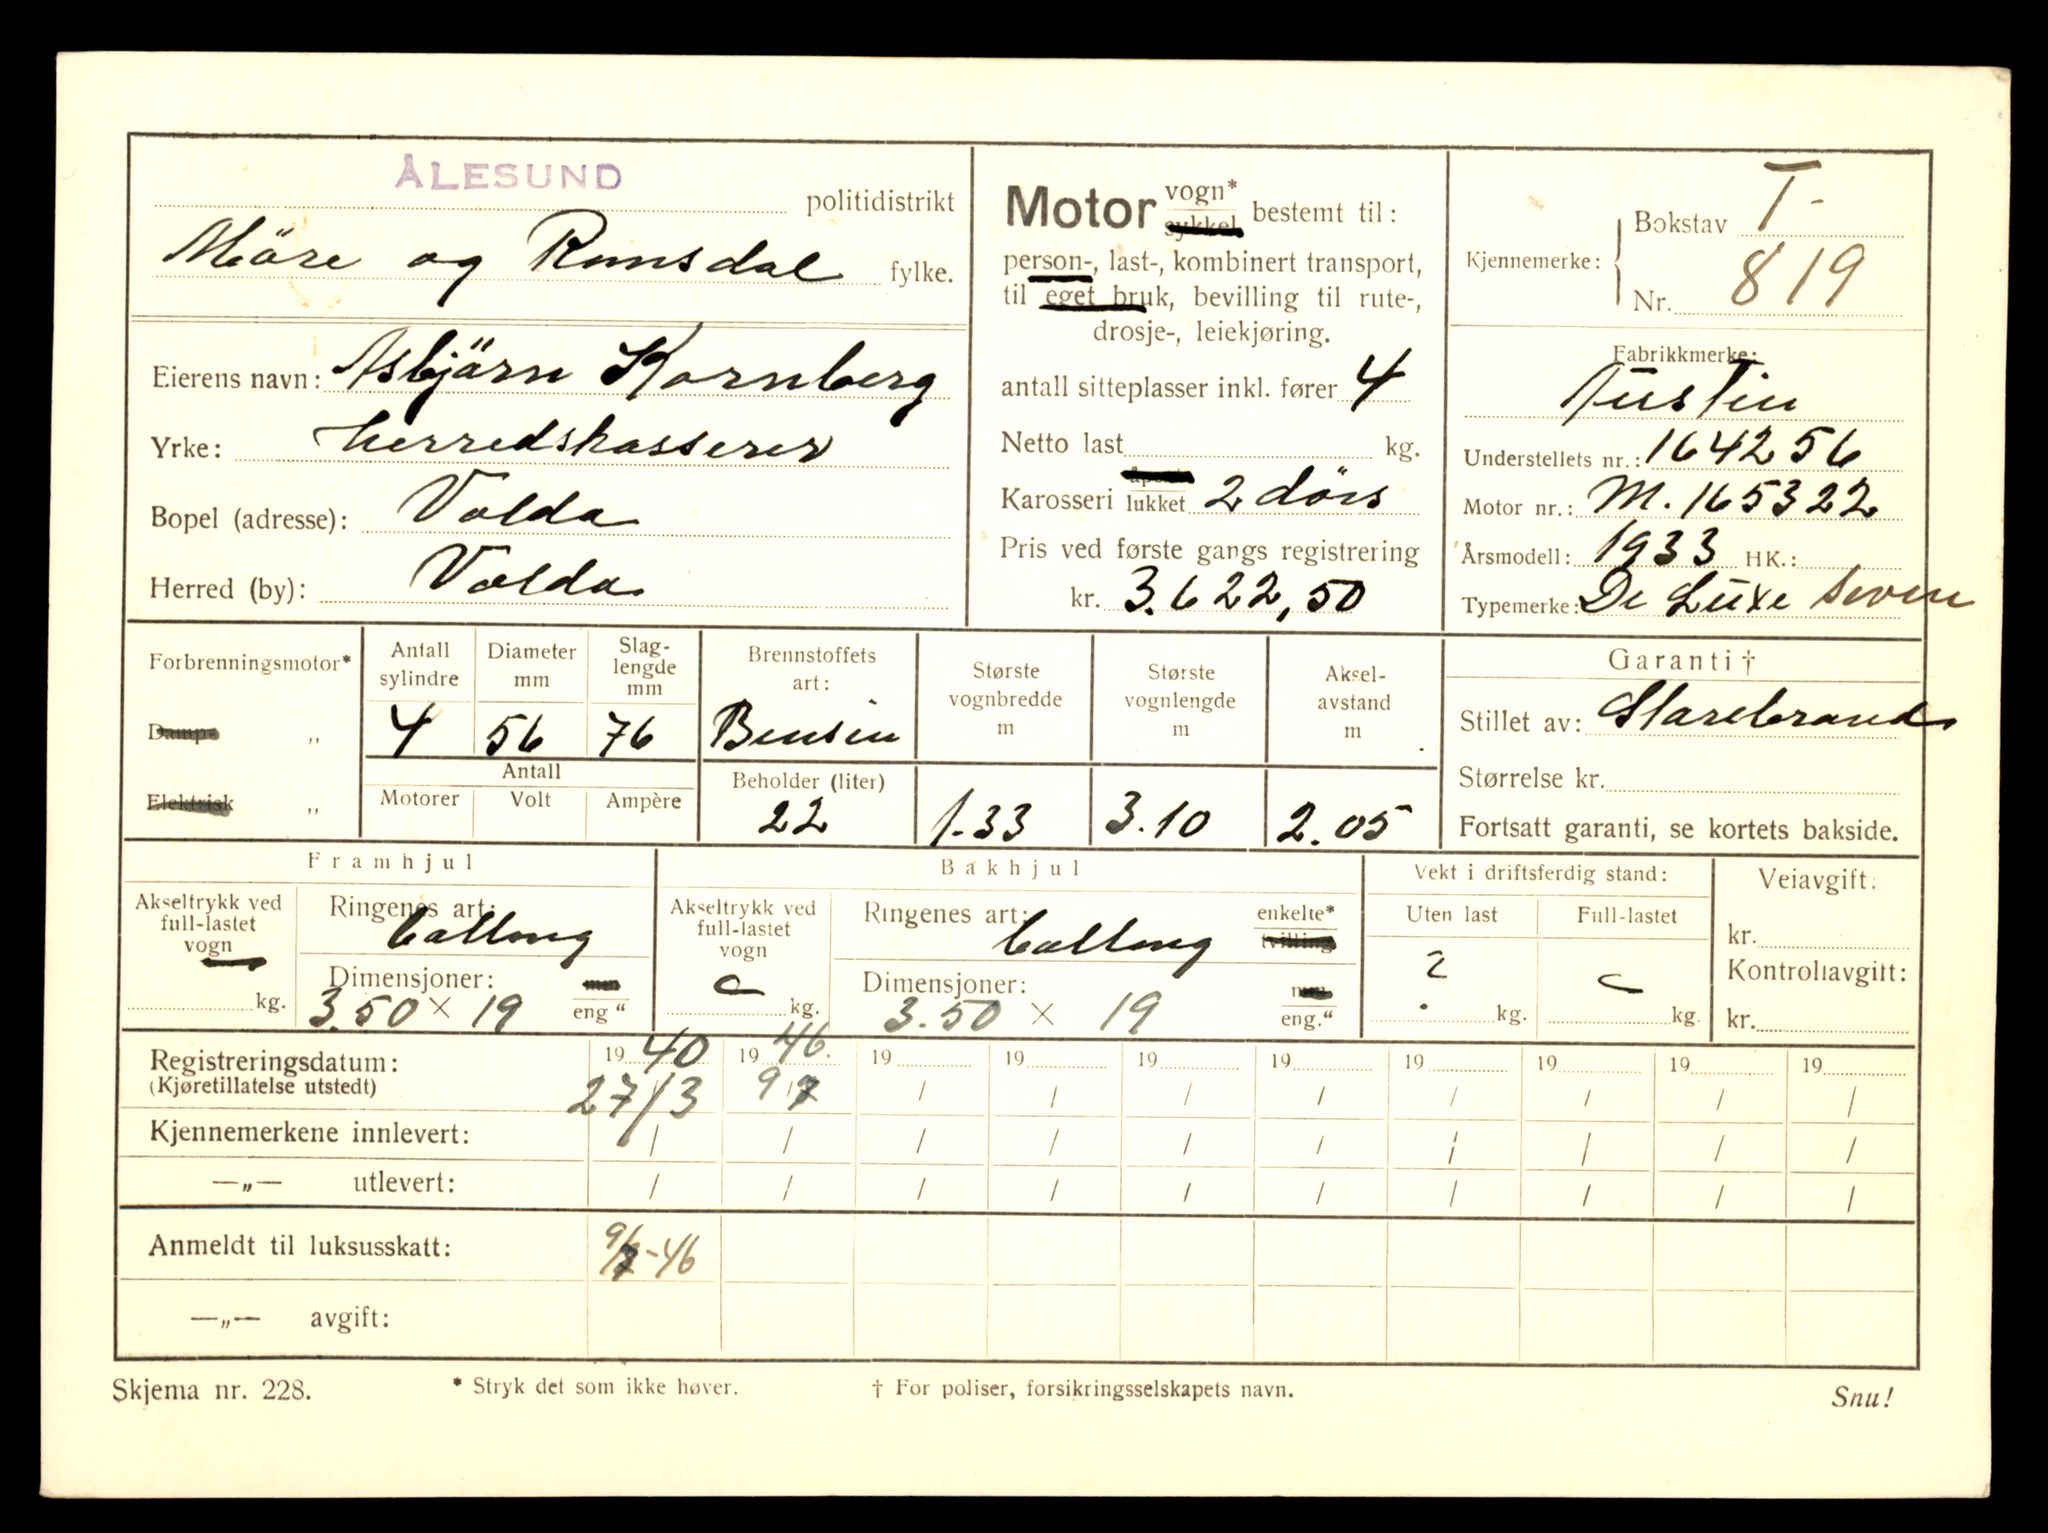 ÅLESUND
politidistrikt
Möre og Romsdal fylke.
Eierens navn: Asbjörn Kornberg
Yrke: herredskasserer
Bopel (adresse): Volda
Herred (by): Volda
Motor vogn* sykkel bestemt til:
person-, last-, kombinert transport,
til eget bruk, bevilling til rute-,
drosje-, leiekjøring.
antall sitteplasser inkl. fører 4
Netto last kg.
Karosseri lukket 2 dörs
Pris ved første gangs registrering
kr. 3.622,50
Kjennemerke: Bokstav T-
Nr. 819
Fabrikkmerke:
Austin
Understellets nr.: 164256
Motor nr.: M. 165322
Årsmodell: 1933 HK.:
Typemerke: De Luxe Seven
Forbrenningsmotor*
Damp- „
Elektrisk „
Antall sylindre
4
Diameter mm
56
Slag-
lengde
mm
76
Antall
Motorer Volt Ampère
Brennstoffets
art:
Bensin
Beholder (liter)
22
Største
vognbredde
m
1.33
Største
vognlengde
m
3.10
Aksel-
avstand
m
2.05
Garanti †
Stillet av: Storebrand
Størrelse kr.
Fortsatt garanti, se kortets bakside.
Framhjul
Akseltrykk ved
full-lastet
vogn
kg.
Ringenes art:
Ballong
Dimensjoner: mm
3.50 × 19 eng “
Bakhjul
Akseltrykk ved
full-lastet
vogn
kg.
Ringenes art: enkelte*
Ballong tvilling
Dimensjoner: mm
3.50 × 19 eng.“
Vekt i driftsferdig stand:
Uten last Full-lastet
kg. kg.
Veiavgift:
kr.
Kontrollavgift:
kr.
Registreringsdatum: 19 40 19 46. 19 19 19 19 19 19 19 19
(Kjøretillatelse utstedt) 27/3 9/7 / / / / / / / /
Kjennemerkene innlevert: / / / / / / / / / /
—„— utlevert: / / / / / / / / / /
Anmeldt til luksusskatt: 9/7-46
—„— avgift:
Skjema nr. 228. * Stryk det som ikke høver. † For poliser, forsikringsselskapets navn. Snu!